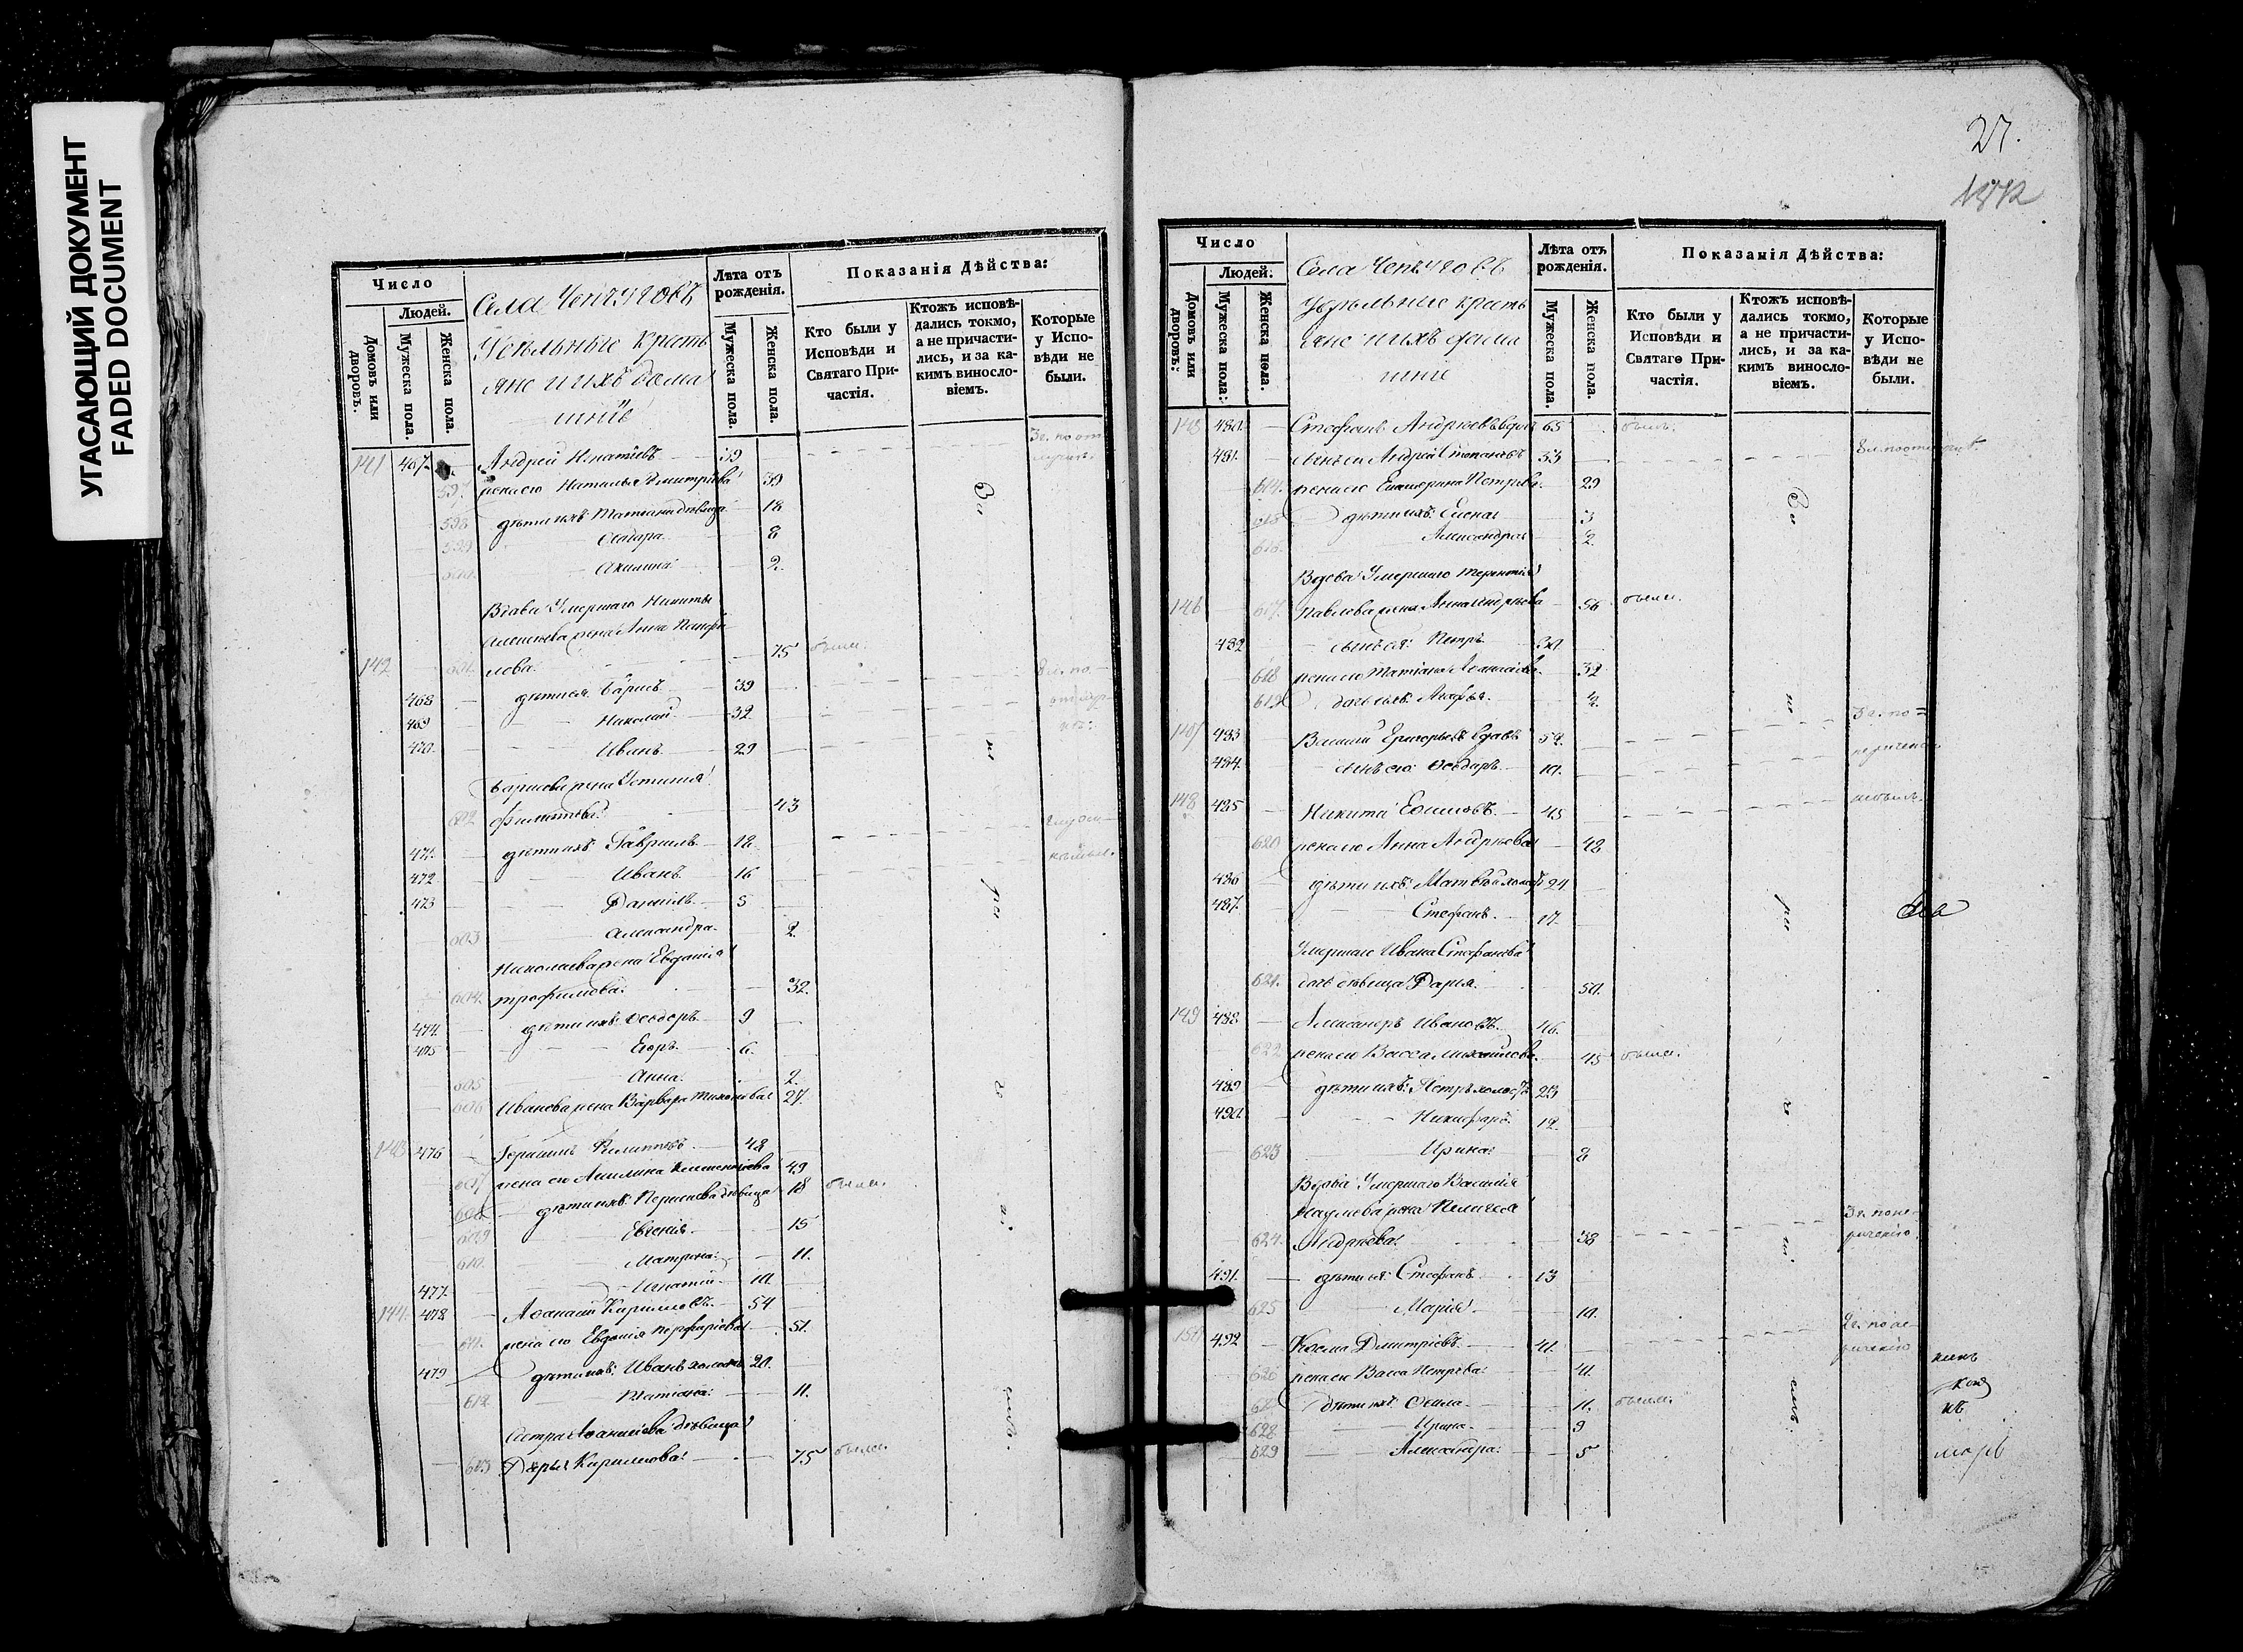 УГАСАЮЩИЙ ДОКУМЕНТ
FADED DOCUMENT
Число
Людей.
Домовъ или дворовъ.
Мужеска пола.
Женска пола.
Села Чепчуговъ
Удѣльные кресть
яне и ихъ дома
шніе
Лѣта отъ рожденія.
Мужеска пола.
Женска пола.
Показанія Дѣйства:
Кто были у Исповѣди и Святаго Причастія.
Ктожъ исповѣдались токмо, а не причастились, и за какимъ винословіемъ.
Которые у Исповѣди не были.
141 467 Андрей Игнатіевъ 59
597 жена его Наталья Дмитріева 39
598 дѣти ихъ: Татіана дѣвица 18
599 8
Акилина 2.
Вдова Умершаго Никиты
Алексѣева жена Анна Панфи
142 601 лова 75 были.
468 дѣти ея Борисъ 39
469 Николай 32
470. Иванъ 29
Борисова жена Устинія
602 Филиппова 43
471. дѣти ихъ Гаврилъ 18
472 Иванъ 16
473 Даніилъ 5
603 Александра 2.
Николаева жена Евдокія
604. Трофимова. 32.
474. дѣти ихъ Ѳеодоръ 9
475 Егоръ 6.
605 Анна. 2.
606 Иванова жена Варвара 27.
143 476 Герасимъ Филиповъ 48
607 жена его Акилина 49
608 дѣти ихъ: дѣвица 18 были.
609 Евгенія. 15
610. Матрона. 11.
477. Игнатій 10
144. 478 Аѳанасій Кириловъ 54
611. жена его Евдокія 51.
479 дѣти ихъ: Иванъ холостъ 20.
612. Татіана: 11.
Сестра Аѳанасіева дѣвица
613 Дарья Кирилова 75 были.
27.
Число
Людей.
Домовъ или дворовъ:
Мужеска пола:
Женска пола.
Села Чепчуговъ
Удѣльные кресть
яне и ихъ дома
шніе
Лѣта отъ рожденія.
Мужеска пола.
Женска пола.
Показанія Дѣйства:
Кто были у Исповѣди и Святаго Причастія.
Ктожъ исповѣдались токмо, а не причастились, и за какимъ винословіемъ.
Которые у Исповѣди не были.
145 480. Стефанъ Андреевъ вдовъ 65 былъ.
481. сынъ его Андрей 33
614. жена его Екатерина Петрова 29
615 дѣти ихъ: Елена 3
616. Александра 2.
Вдова Умершаго Терентія
146 617. Павлова жена Анна Андреева 56 были.
482 сынъ ея: Петръ 30
618 жена его Татіана Аѳанасіева 32
619 дочь ихъ: Марѳа.
147 483 Василій Григорьевъ вдовъ 52.
484. сынъ его: Ѳеодоръ 10.
148 485 Никита Ефимовъ 45
620 жена его Анна Андреева 42
486 дѣти ихъ: Матвѣй холостъ 24
487. Стефанъ. 17.
Умершаго Ивана Стефанова
621. дочь дѣвица Дарья. 50.
149 488 Александръ Ивановъ. 46.
622 жена его Васса Михайлова 45 были.
489 дѣти ихъ: Петръ холостъ 23
490. Никифоръ. 12.
623 Ирина: 8
Вдова Умершаго Василія
Наумова жена Пелагея
624. Андреева 38
491. дѣти ея: Стефанъ 13
625 Марія 10.
150 492 Косма Дмитріевъ. 41.
626 жена его Васса Петрова 41.
дѣти ихъ: 11. были.
628 Ирина 9
629 Александра: 5